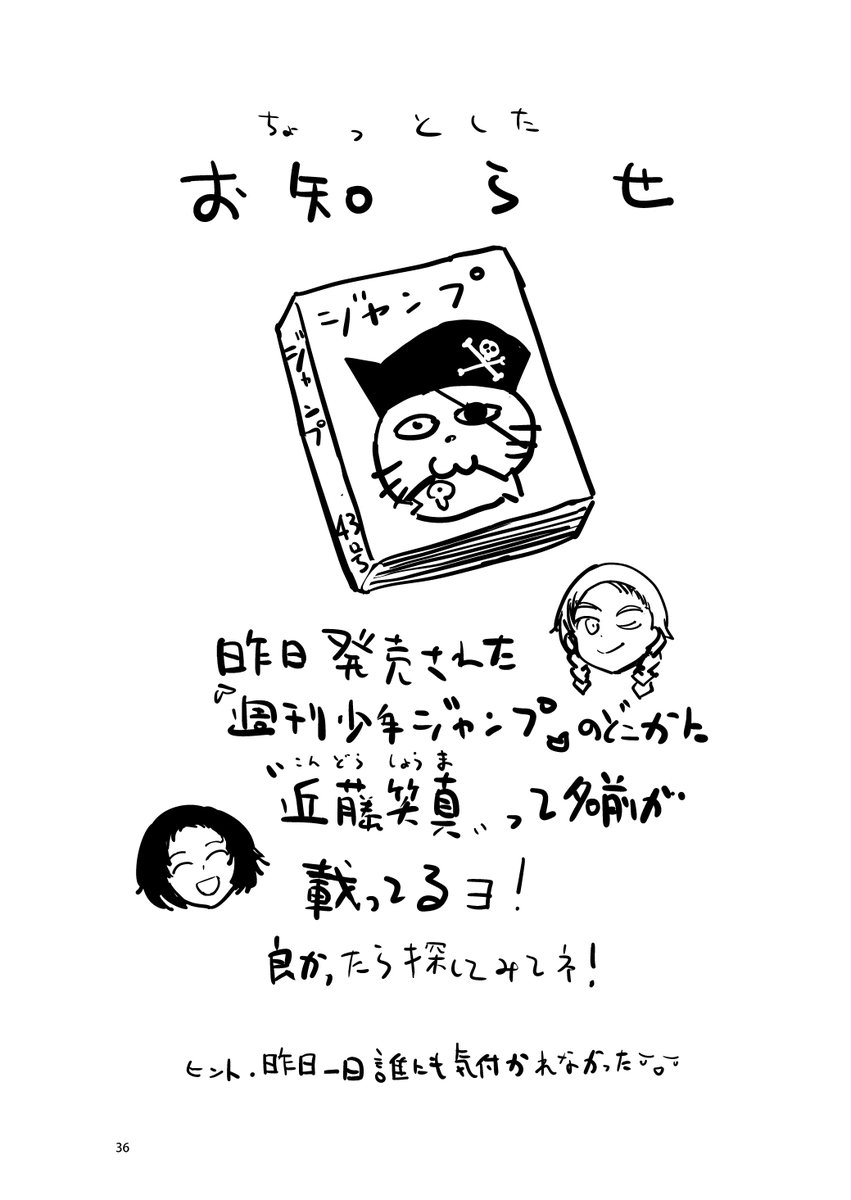 ちょっとした
お知らせ
ジャンプ
ジャンプ
43号
昨日発売された
『週刊少年ジャンプ』のどこかに
こんどう しょうま
“近藤笑真”って名前が
載ってるヨ!
良かったら探してみてネ!
ヒント.昨日一日誰にも気付かれなかった
36